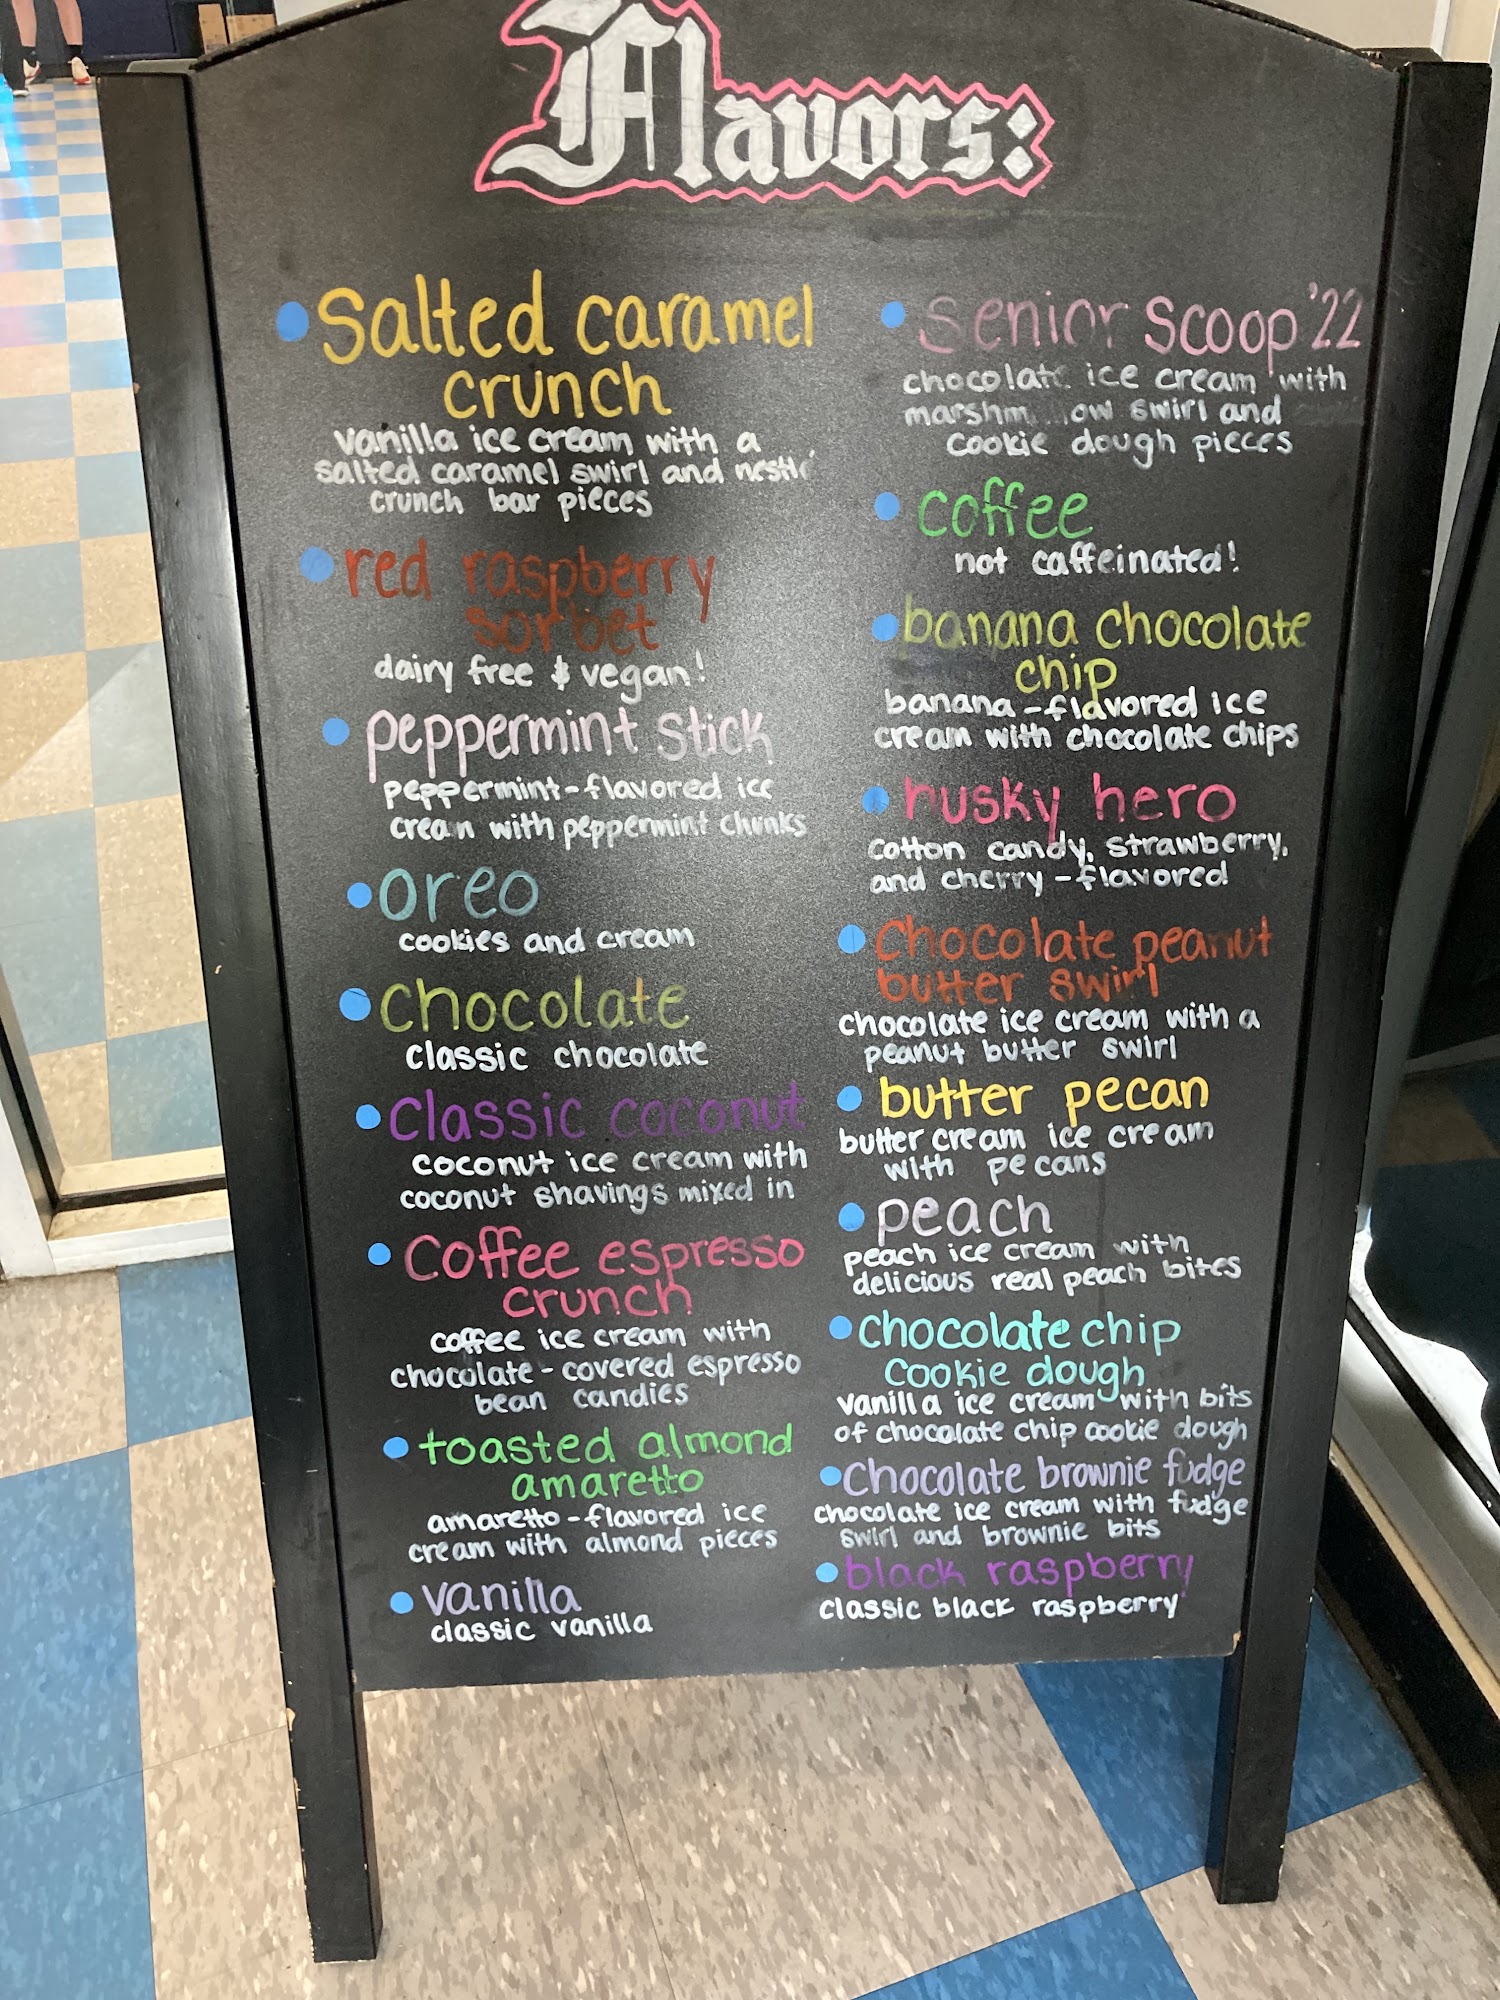 Flavors:
Salted caramel
crunch
vanilla ice cream with a
salted caramel swirl and nestle
crunch bar pieces
red raspberry
sorbet
dairy free & vegan!
peppermint stick
peppermint-flavored ice
cream with peppermint chunks
oreo
cookies and cream
chocolate
classic chocolate
classic coconut
coconut ice cream with
coconut shavings mixed in
Coffee espresso
crunch
coffee ice cream with
chocolate-covered espresso
bean candies
toasted almond
amaretto
amaretto-flavored ice
cream with almond pieces
vanilla
classic vanilla
Senior Scoop '22
chocolate ice cream with
marshmallow swirl and
cookie dough pieces
coffee
not caffeinated!
banana chocolate
chip
banana-flavored ice
cream with chocolate chips
husky hero
cotton candy, strawberry,
and cherry-flavored
Chocolate peanut
butter swirl
chocolate ice cream with a
peanut butter swirl
butter pecan
butter cream ice cream
with pecans
peach
peach ice cream with
delicious real peach bites
chocolate chip
cookie dough
vanilla ice cream with bits
of chocolate chip cookie dough
Chocolate brownie fudge
chocolate ice cream with fudge
swirl and brownie bits
black raspberry
classic black raspberry